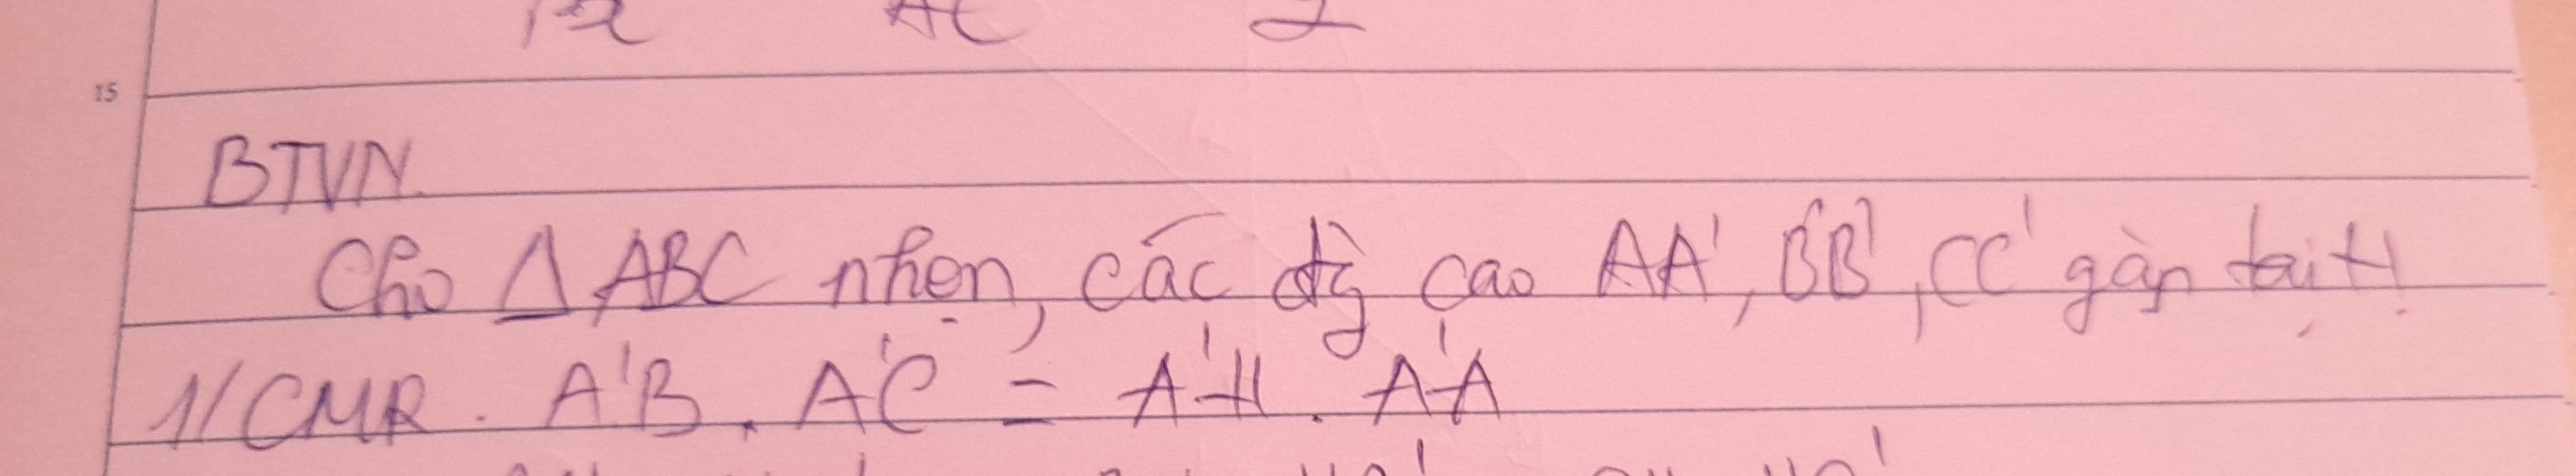 15
BTVN.
Cho Δ ABC nhọn, các đg cao AA', BB', CC' gặp tại H
1/ CMR. A'B . A'C = A'H . A'A